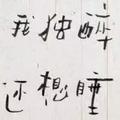 我独醉
还想睡